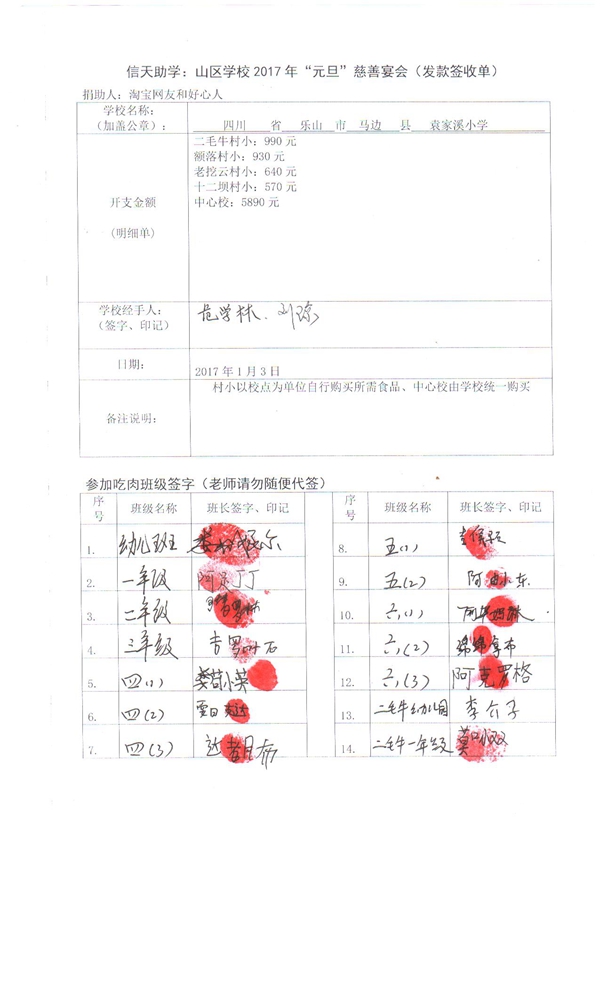 信天助学：山区学校 2017 年“元旦”慈善宴会（发款签收单）
捐助人：淘宝网友和好心人
学校名称：
（加盖公章）：
四川 省 乐山 市 马边 县 袁家溪小学
开支金额
(明细单)
二毛牛村小：990 元
额落村小：930 元
老挖云村小：640 元
十二坝村小：570 元
中心校：5890 元
学校经手人：
（签字、印记）
范学林．刘琼
日期：
2017 年 1 月 3 日
备注说明：
村小以校点为单位自行购买所需食品、中心校由学校统一购买
参加吃肉班级签字（老师请勿随便代签）
序号 班级名称 班长签字、印记 序号 班级名称 班长签字、印记
1. 幼儿班
2. 一年级 阿足丁丁
3. 二年级
4. 三年级 吉罗叶石
5. 四(1)
6. 四(2)
7. 四(3)
8. 五(1)
9. 五(2)
10. 六(1)
11. 六(2)
12. 六(3) 阿克罗格
13. 二毛牛幼儿园 李介子
14. 二毛牛一年级